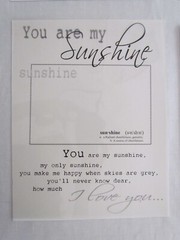 You are my
Sunshine
sunshine
sun·shine
You are my sunshine,
my only sunshine,
you make me happy when skies are gray,
you'll never know dear,
how much
I love you...